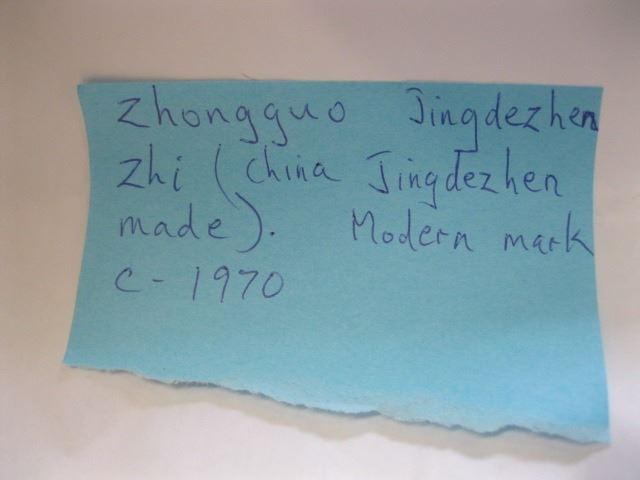 Zhongguo Jingdezhen
Zhi (China Jingdezhen
made). Modern mark
c - 1970